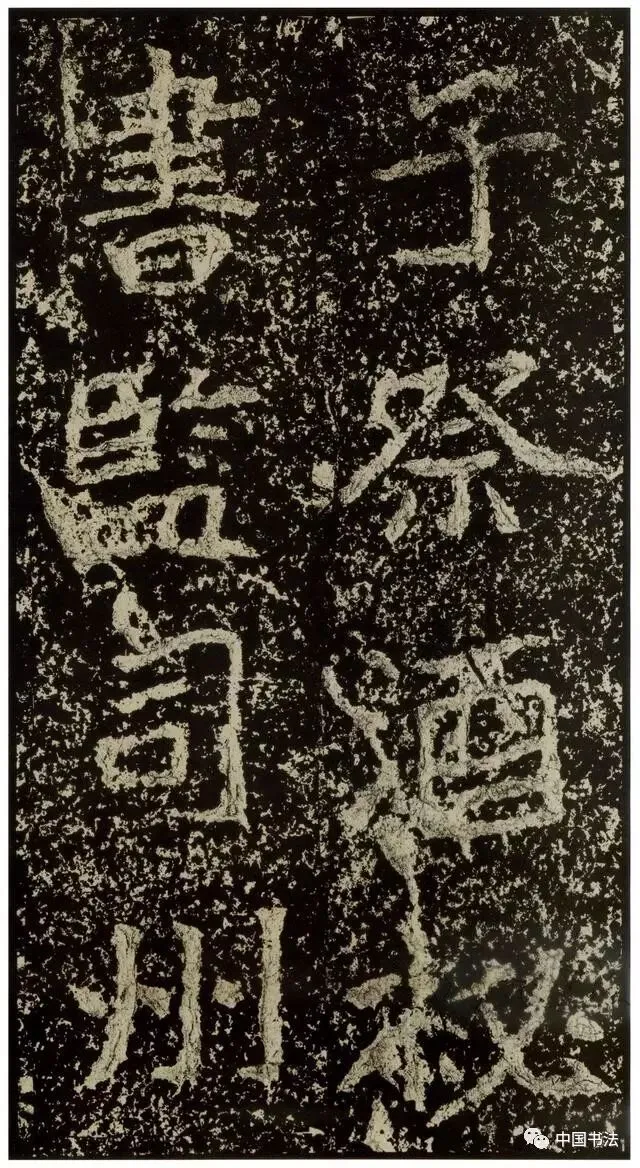 子祭酒秘
書監司州
中国书法